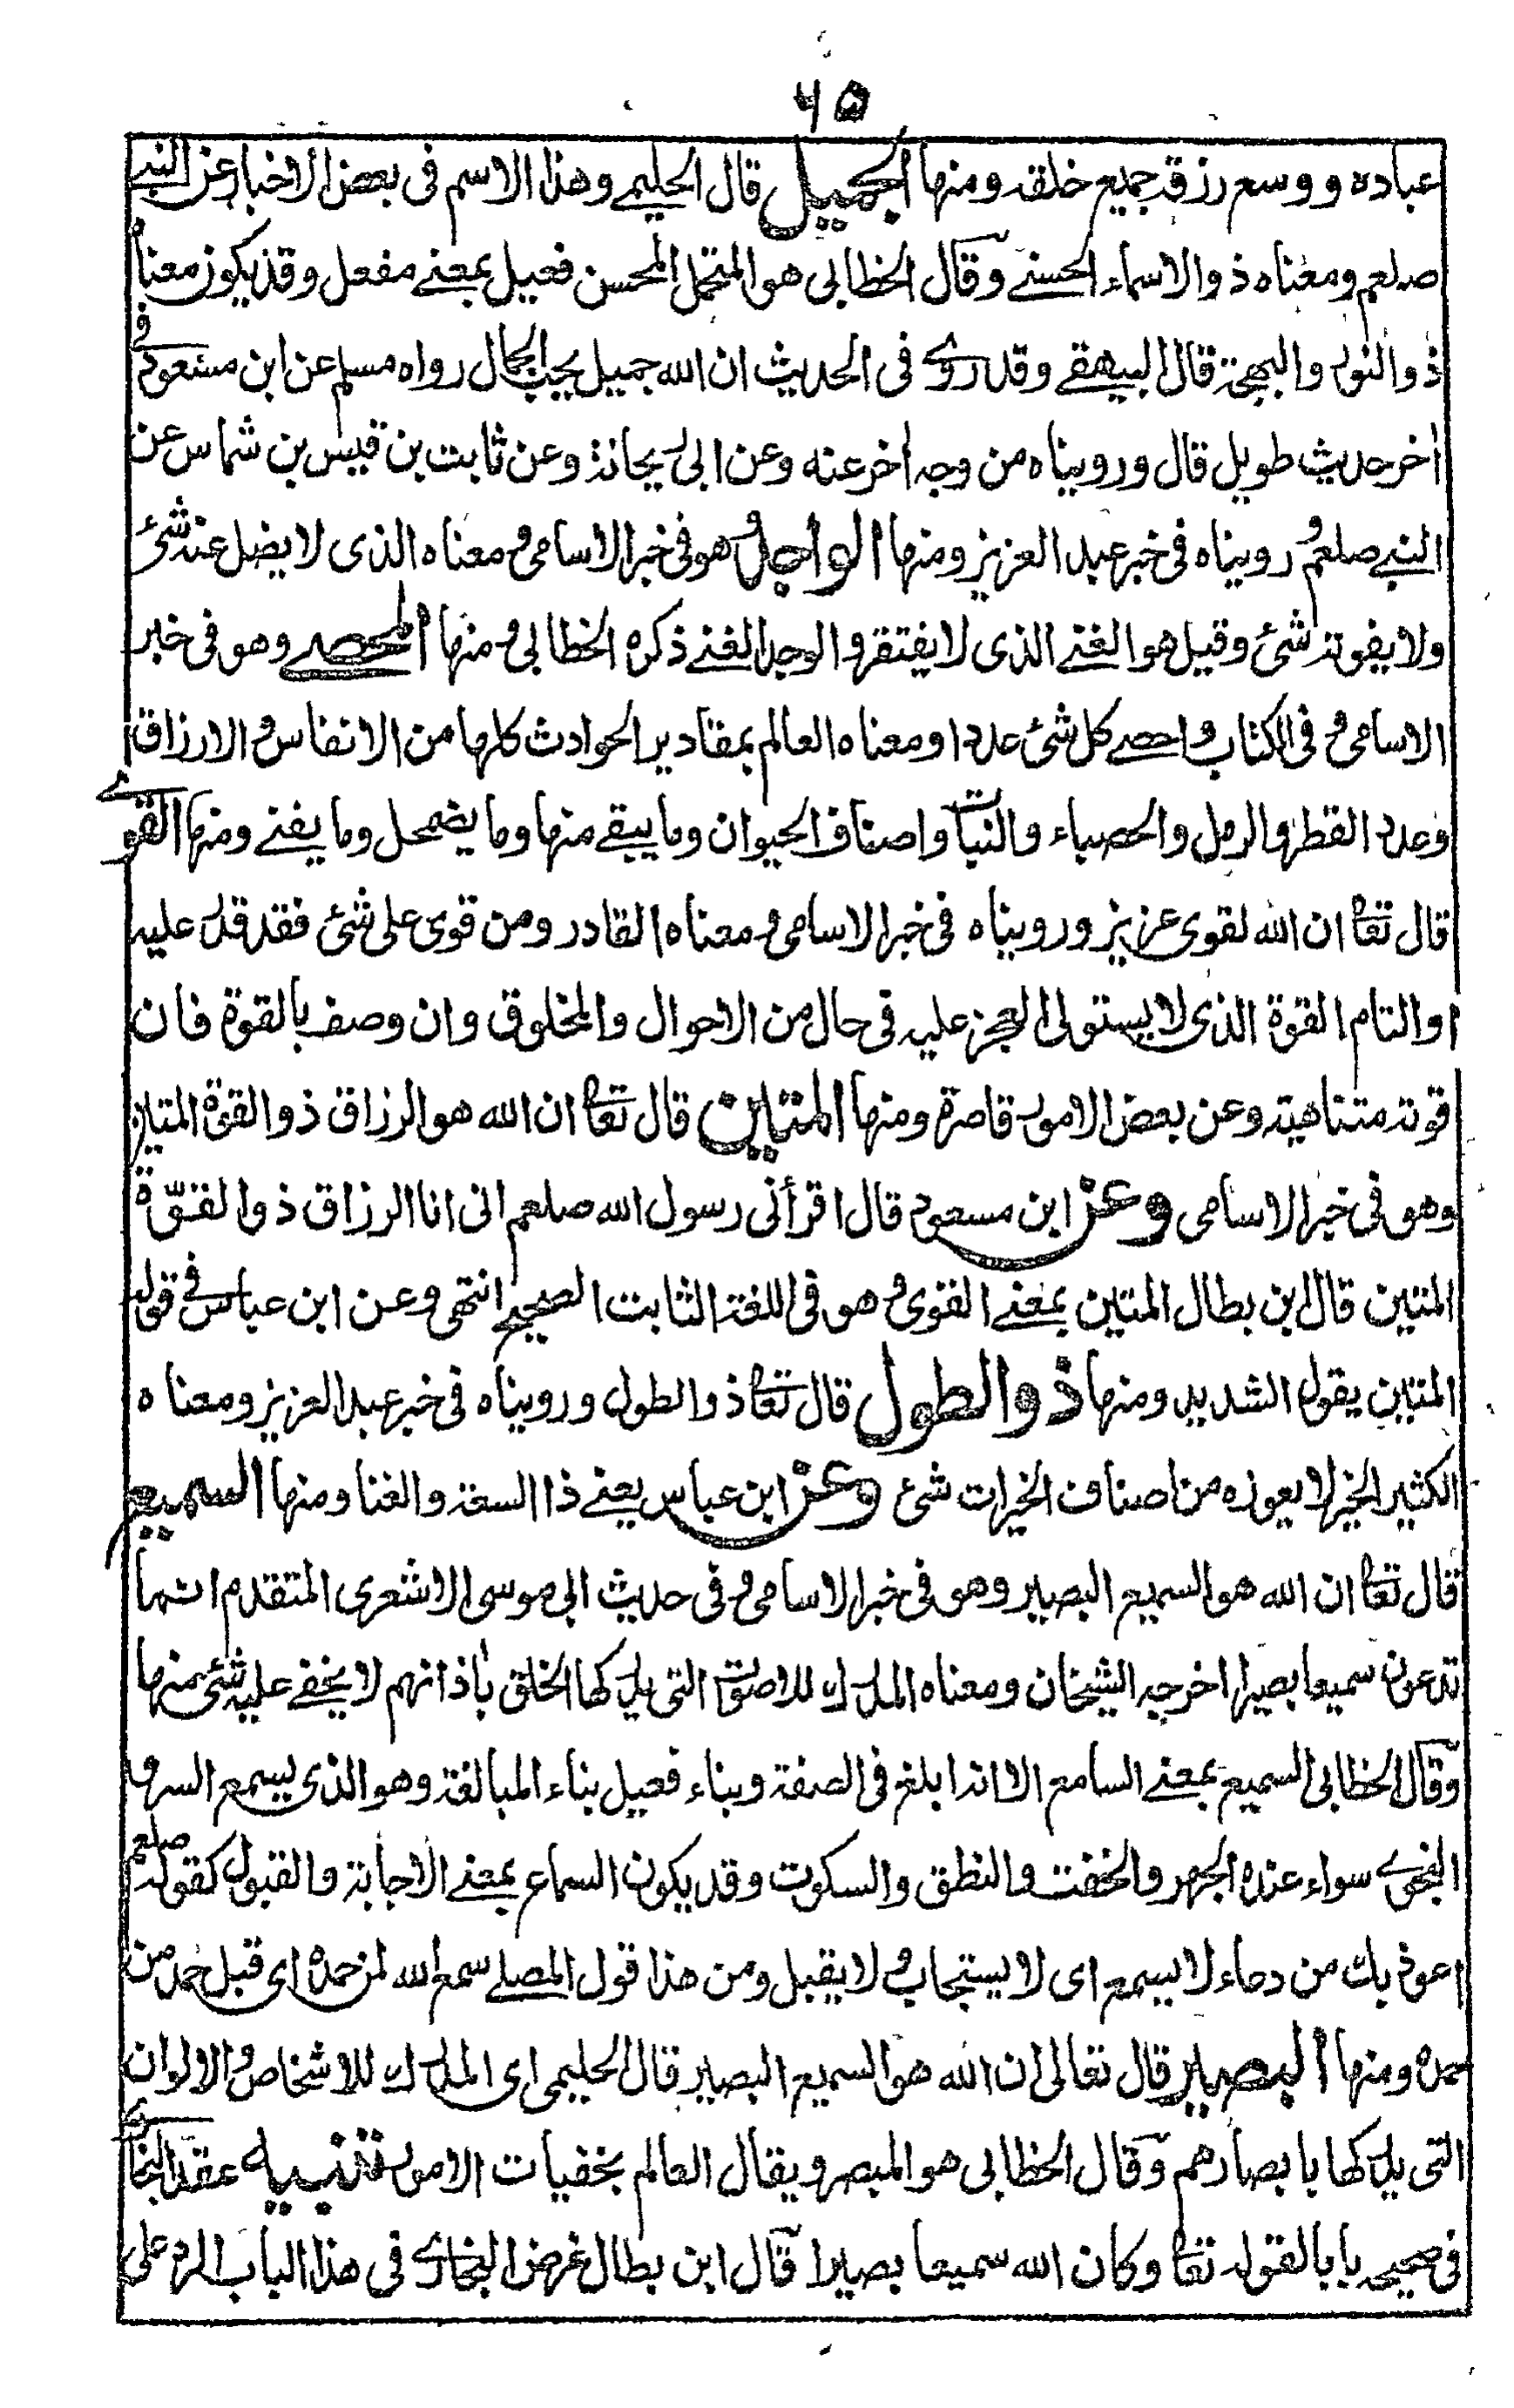 ٦٥
عباده و وسع رزقه جميع خلقه ومنها الجميل قال الحليمے وهذا الاسم فى بعض الاخبار عن النبے
صلعم ومعناه ذو الاسماء الحسنے وقال الخطابى هو المتجمل المحسن فعيل بمعنے مفعل وقد يكون معناه
ذو النور والبهجة قال البيهقے وقد روے فى الحديث ان الله جميل يحب الجمال رواه مسلم عن ابن مسعود فى
اخر حديث طويل قال ورويناه من وجه اخر عنه وعن ابى ريحانة وعن ثابت بن قيس بن شماس عن
النبے صلعم و رويناه فى خبر عبد العزيز ومنها الواجد وهو فى خبر الاسامى و معناه الذى لا يضل عنه شئ
ولا يفوته شئ وقيل هو الغنے الذى لا يفتقر والوجد الغنے ذكره الخطابى و منها المحصے وهو فى خبر
الاسامى و فى الكتاب واحصے كل شئ عددا ومعناه العالم بمقادير الحوادث كلها من الانفاس و الارزاق
وعدد القطر والرمل والحصباء والنبات واصناف الحيوان وما يبقے منها وما يضمحل وما يفنے ومنها القوے
قال تعا ان الله لقوى عزيز ورويناه فى خبر الاسامى و معناه القادر ومن قوى على شئ فقد قدر عليه
او التام القوة الذى لا يستولى العجز عليه فى حال من الاحوال والمخلوق وان وصف بالقوة فان
قوته متناهية وعن بعض الامور قاصرة ومنها المتين قال تعا ان الله هو الرزاق ذو القوة المتين
وهو فى خبر الاسامى وعن ابن مسعود قال اقرأنى رسول الله صلعم انى انا الرزاق ذو القوّة
المتين قال ابن بطال المتين بمعنے القوى و هو فى اللغة الثابت الصحيح انتهى وعن ابن عباس فى قوله
المتين يقول الشديد ومنها ذو الطول قال تعا ذو الطول ورويناه فى خبر عبد العزيز ومعناه
الكثير الخير لا يعوزه من اصناف الخيرات شئ وعن ابن عباس يعنے ذا السعة والغنا ومنها السميع
قال تعا ان الله هو السميع البصير وهو فى خبر الاسامى و فى حديث ابى موسى الاشعرى المتقدم انما
تدعون سميعا بصيرا اخرجه الشيخان ومعناه المدرك للاصوات التى يدركها الخلق باذانهم لا يخفے عليه شئ منها
وقال الخطابى السميع بمعنے السامع الا انه ابلغ فى الصفة وبناء فعيل بناء المبالغة وهو الذى يسمع السر و
النجوے سواء عنده الجهر والخفت والنطق والسكوت وقد يكون السماع بمعنے الاجابة والقبول كقوله صلعم
اعوذ بك من دعاء لا يسمع اى لا يستجاب و لا يقبل ومن هذا قول المصلے سمع الله لمن حمده اى قبل حمد من
حمده ومنها البصير قال تعالى ان الله هو السميع البصير قال الحليمى اى المدرك للاشخاص و الالوان
التى يدركها بابصارهم وقال الخطابى هو المبصر ويقال العالم بخفيات الامور تنبيه عقد البخارى
فى صحيحه بابا لقوله تعا وكان الله سميعا بصيرا قال ابن بطال غرض البخارے فى هذا الباب الرد على